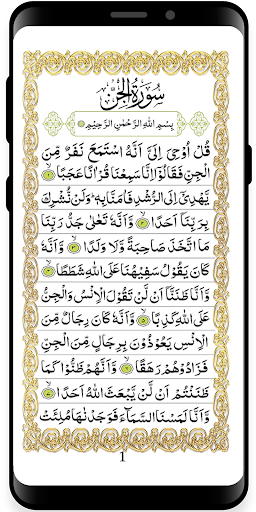 سُورَةُ الْجِنِّ
بِسْمِ اللهِ الرَّحْمٰنِ الرَّحِيْمِ
قُلْ اُوْحِيَ اِلَيَّ اَنَّهُ اسْتَمَعَ نَفَرٌ مِّنَ
الْجِنِّ فَقَالُوْٓا اِنَّا سَمِعْنَا قُرْاٰنًا عَجَبًا ۝١
يَّهْدِيْٓ اِلَى الرُّشْدِ فَاٰمَنَّا بِهٖ ؕ وَلَنْ نُّشْرِكَ
بِرَبِّنَآ اَحَدًا ۝٢ وَّاَنَّهٗ تَعٰلٰى جَدُّ رَبِّنَا
مَا اتَّخَذَ صَاحِبَةً وَّلَا وَلَدًا ۝٣ وَّاَنَّهٗ
كَانَ يَقُوْلُ سَفِيْهُنَا عَلَى اللهِ شَطَطًا ۝٤
وَّاَنَّا ظَنَنَّآ اَنْ لَّنْ تَقُوْلَ الْاِنْسُ وَالْجِنُّ
عَلَى اللهِ كَذِبًا ۝٥ وَّاَنَّهٗ كَانَ رِجَالٌ مِّنَ
الْاِنْسِ يَعُوْذُوْنَ بِرِجَالٍ مِّنَ الْجِنِّ
فَزَادُوْهُمْ رَهَقًا ۝٦ وَّاَنَّهُمْ ظَنُّوْا كَمَا
ظَنَنْتُمْ اَنْ لَّنْ يَّبْعَثَ اللهُ اَحَدًا ۝٧
وَّاَنَّا لَمَسْنَا السَّمَآءَ فَوَجَدْنٰهَا مُلِئَتْ
1